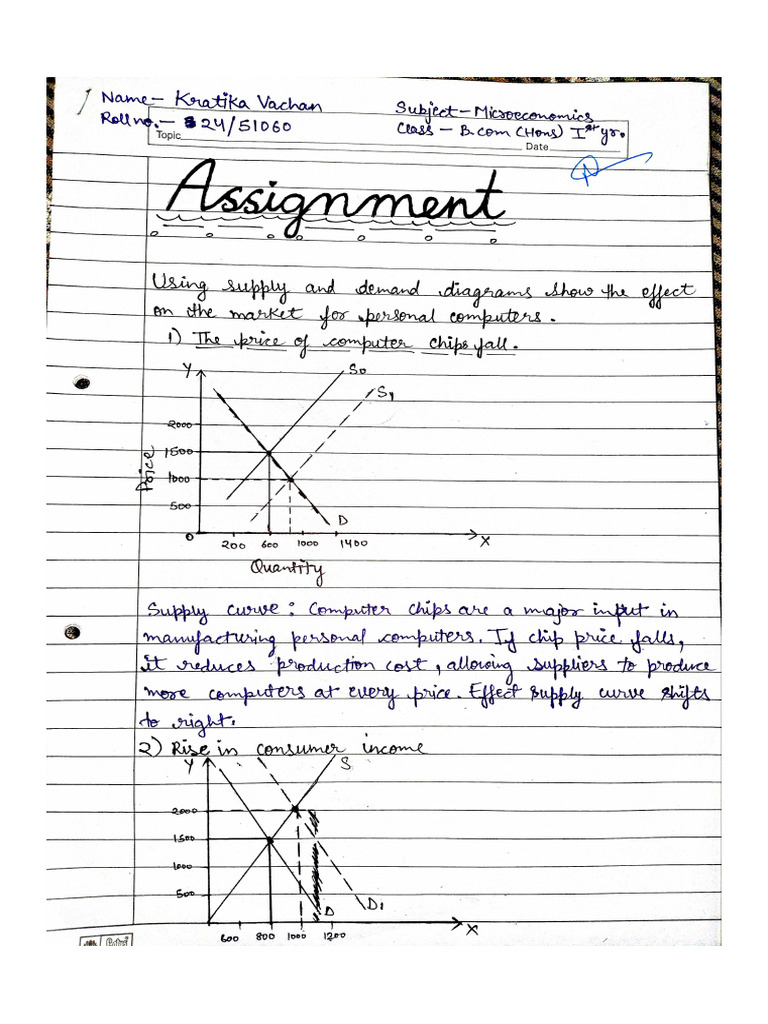 Name- Kratika Vachan Subject- Microeconomics
Roll no.- 24/51060 Class - B.com (Hons) Ist yr.
Topic Date
Assignment
Using supply and demand diagrams show the effect
on the market for personal computers.
1) The price of computer chips fall.
Y S0
S1
2000
1500
1000
500
Price
D
0 200 600 1000 1400 X
Quantity
Supply curve: Computer chips are a major input in
manufacturing personal computers. If chip price falls,
it reduces production cost, allowing suppliers to produce
more computers at every price. Effect supply curve shifts
to right.
2) Rise in consumer income
Y S
2000
1500
1000
500
D D1
600 800 1000 1200 X